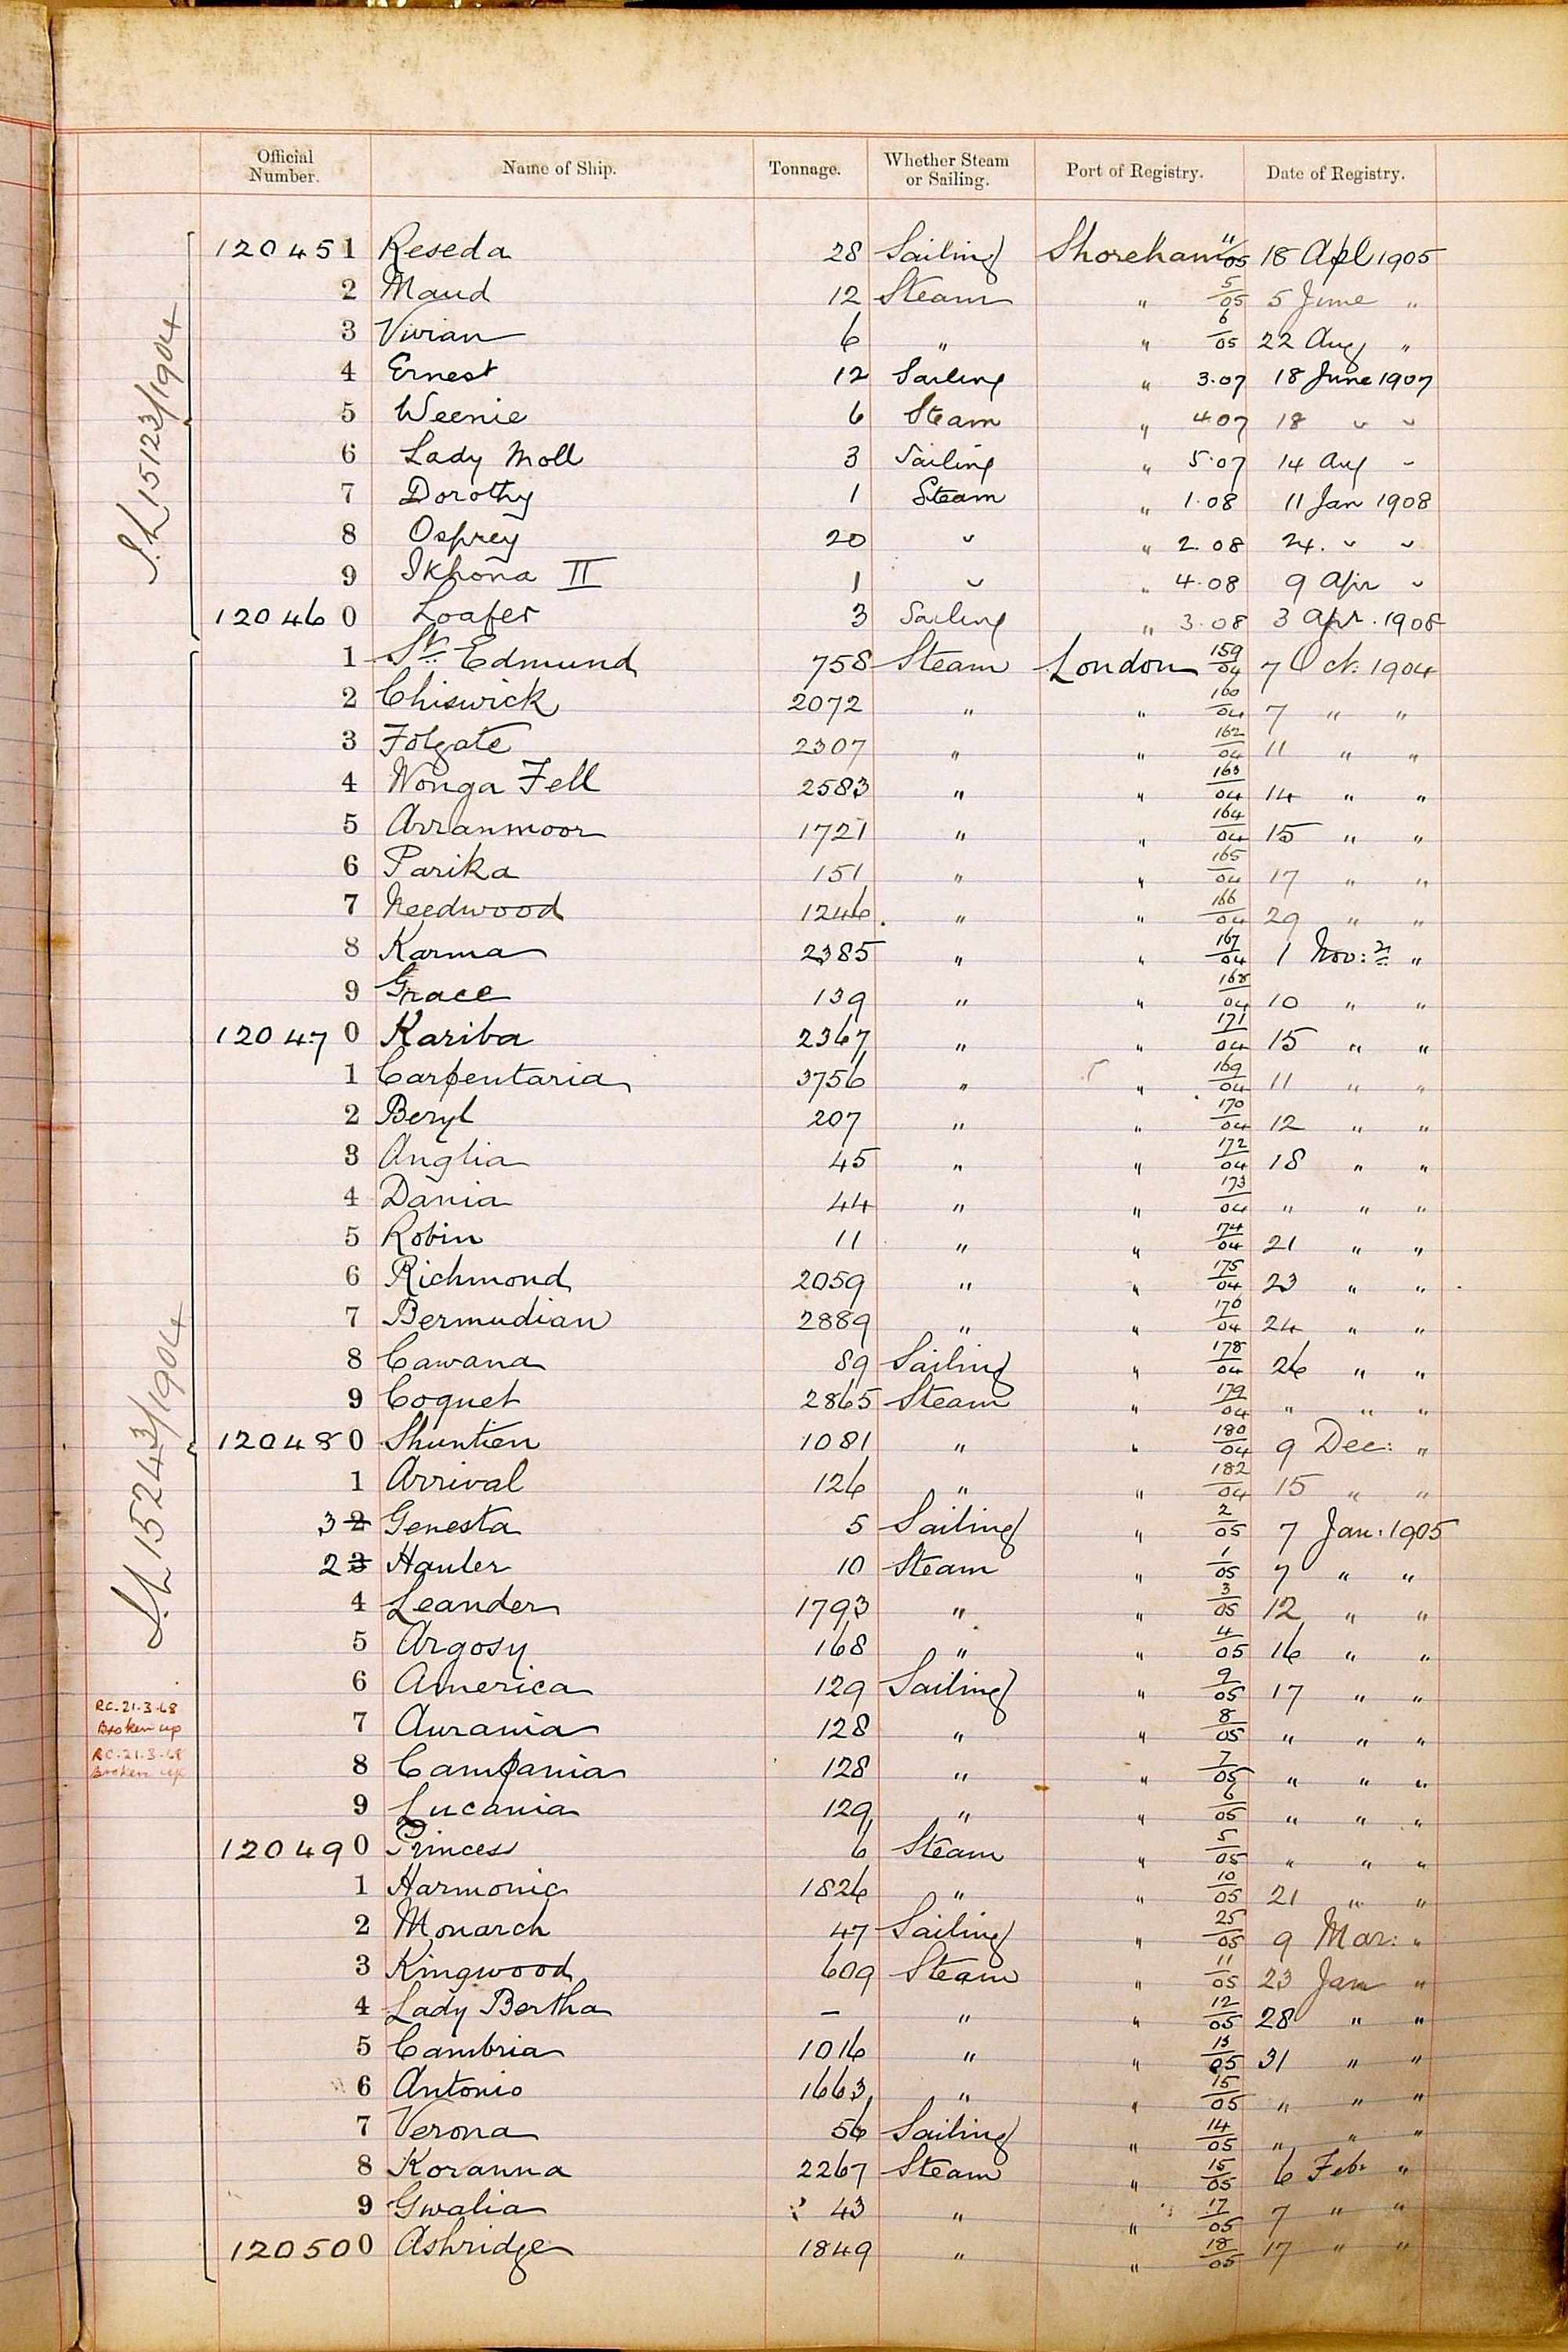 Official Number. Name of Ship. Tonnage. Whether Steam or Sailing. Port of Registry. Date of Registry.
S.L 15123/1904
120451 Reseda 28 Sailing Shoreham 4/05 18 Apl 1905
2 Maud 12 Steam " 5/05 5 June "
3 Vivian 6 " " 6/05 22 Aug "
4 Ernest 12 Sailing " 3.07 18 June 1907
5 Weenie 6 Steam " 4.07 18 " "
6 Lady Moll 3 Sailing " 5.07 14 Aug "
7 Dorothy 1 Steam " 1.08 11 Jan 1908
8 Osprey 20 " " 2.08 24. " "
9 Ikhona II 1 " " 4.08 9 Apr "
120460 Loafer 3 Sailing " 3.08 3 Apr. 1908
1 St. Edmund 758 Steam London 159/04 7 Oct. 1904
2 Chiswick 2072 " " 160/04 7 " "
3 Folgate 2307 " " 162/04 11 " "
4 Wonga Fell 2583 " " 163/04 14 " "
5 Arranmoor 1721 " " 164/04 15 " "
6 Parika 151 " " 165/04 17 " "
7 Needwood 1246 " " 166/04 29 " "
8 Karma 2385 " " 167/04 1 Nov: "
9 Grace 139 " " 168/04 10 " "
120470 Kariba 2367 " " 171/04 15 " "
1 Carpentaria 3756 " " 169/04 11 " "
2 Beryl 207 " " 170/04 12 " "
3 Anglia 45 " " 172/04 18 " "
4 Dania 44 " " 173/04 " " "
5 Robin 11 " " 174/04 21 " "
6 Richmond 2059 " " 175/04 23 " "
7 Bermudian 2889 " " 176/04 24 " "
8 Cawana 89 Sailing " 178/04 26 " "
9 Coquet 2865 Steam " 179/04 " " "
S.L 15243/1904
120480 Shuntien 1081 " " 180/04 9 Dec: "
1 Arrival 126 " " 182/04 15 " "
3 2 Genesta 5 Sailing " 2/05 7 Jan: 1905
2 3 Hauler 10 Steam " 1/05 7 " "
4 Leander 1793 " " 3/05 12 " "
5 Argosy 168 " " 4/05 16 " "
6 America 129 Sailing " 9/05 17 " "
RC. 21.3.68
Broken up
7 Aurania 128 " " 8/05 " " "
RC. 21.3.68
Broken up
8 Campania 128 " " 7/05 " " "
9 Lucania 129 " " 6/05 " " "
120490 Princess 6 Steam " 5/05 " " "
1 Harmonic 1826 " " 10/05 21 " "
2 Monarch 47 Sailing " 25/05 9 Mar: "
3 Kingwood 609 Steam " 11/05 23 Jan "
4 Lady Bertha — " " 12/05 28 " "
5 Cambria 1016 " " 13/05 31 " "
6 Antonio 1663 " " 15/05 " " "
7 Verona 56 Sailing " 14/05 " " "
8 Koranna 2267 Steam " 15/05 6 Feb: "
9 Gwalia 43 " " 17/05 7 " "
120500 Ashridge 1849 " " 18/05 17 " "